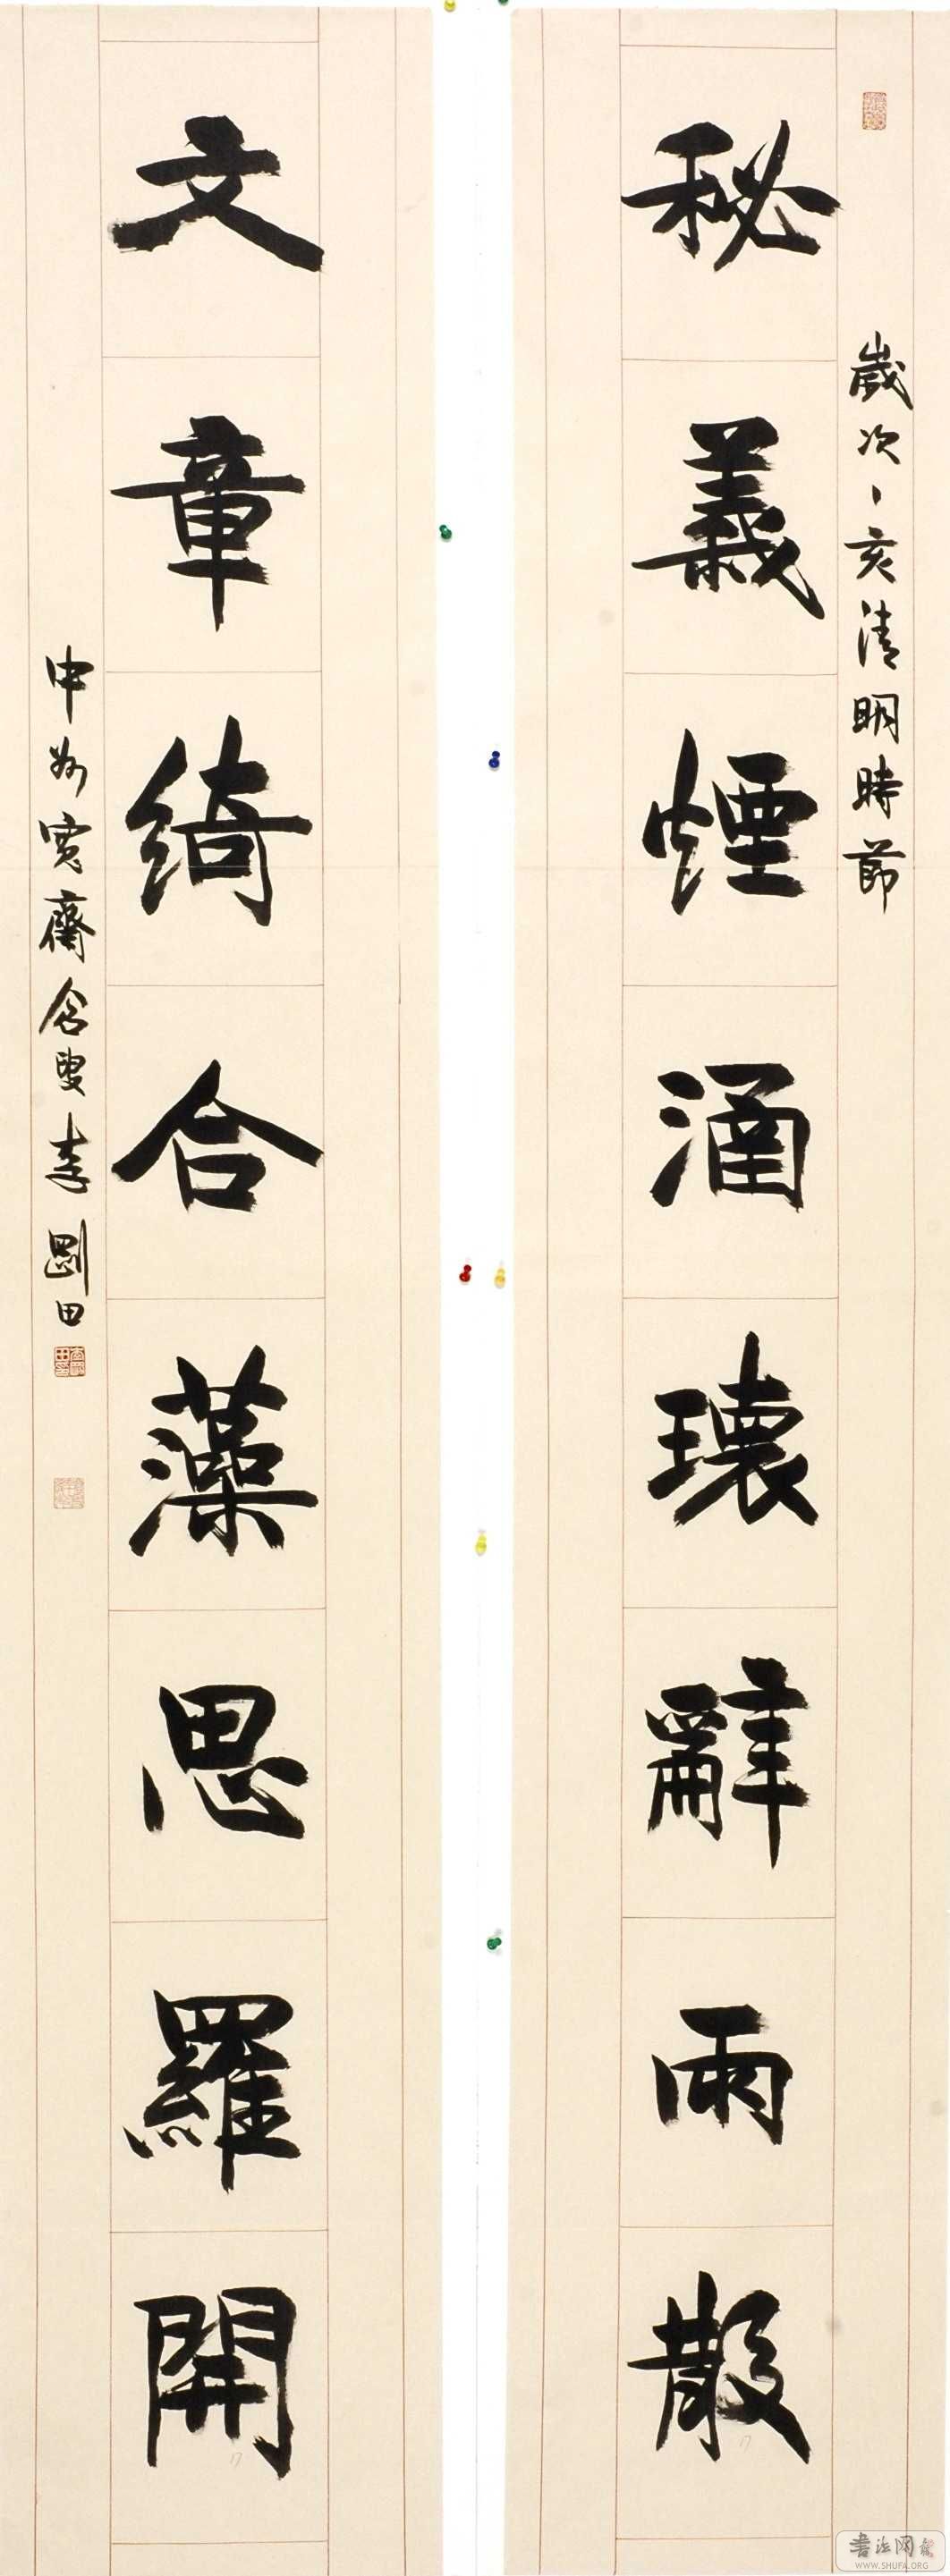 歲次丁亥清明時節
秘義煙涌瓌辭雨散
文章綺合藻思羅開
中州寬齋含叟李剛田
書法网
WWW.SHUFA.ORG